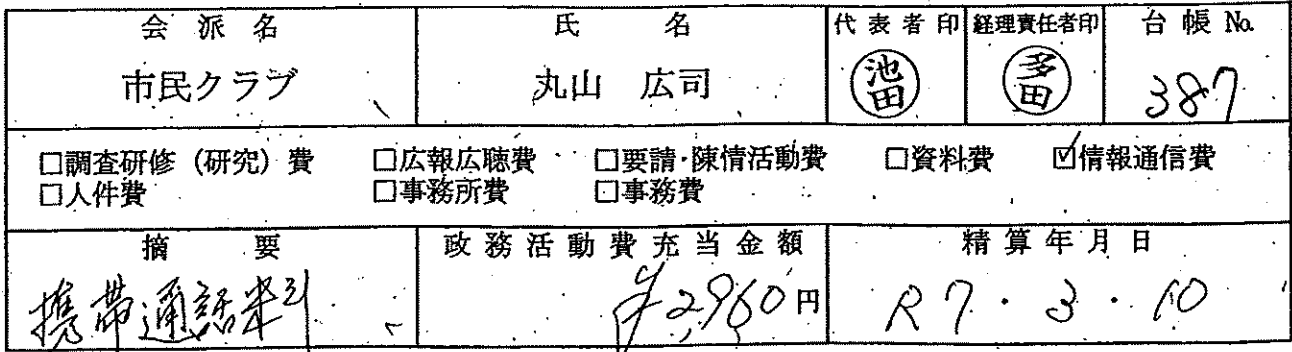 会派名 氏名 代表者印 経理責任者印 台帳No.
市民クラブ 丸山 広司 池田 多田 387
□調査研修（研究）費 □広報広聴費 □要請・陳情活動費 □資料費 ☑情報通信費
□人件費 □事務所費 □事務費
摘要 政務活動費充当金額 精算年月日
携帯通話料 ¥2,960円 R7・3・10